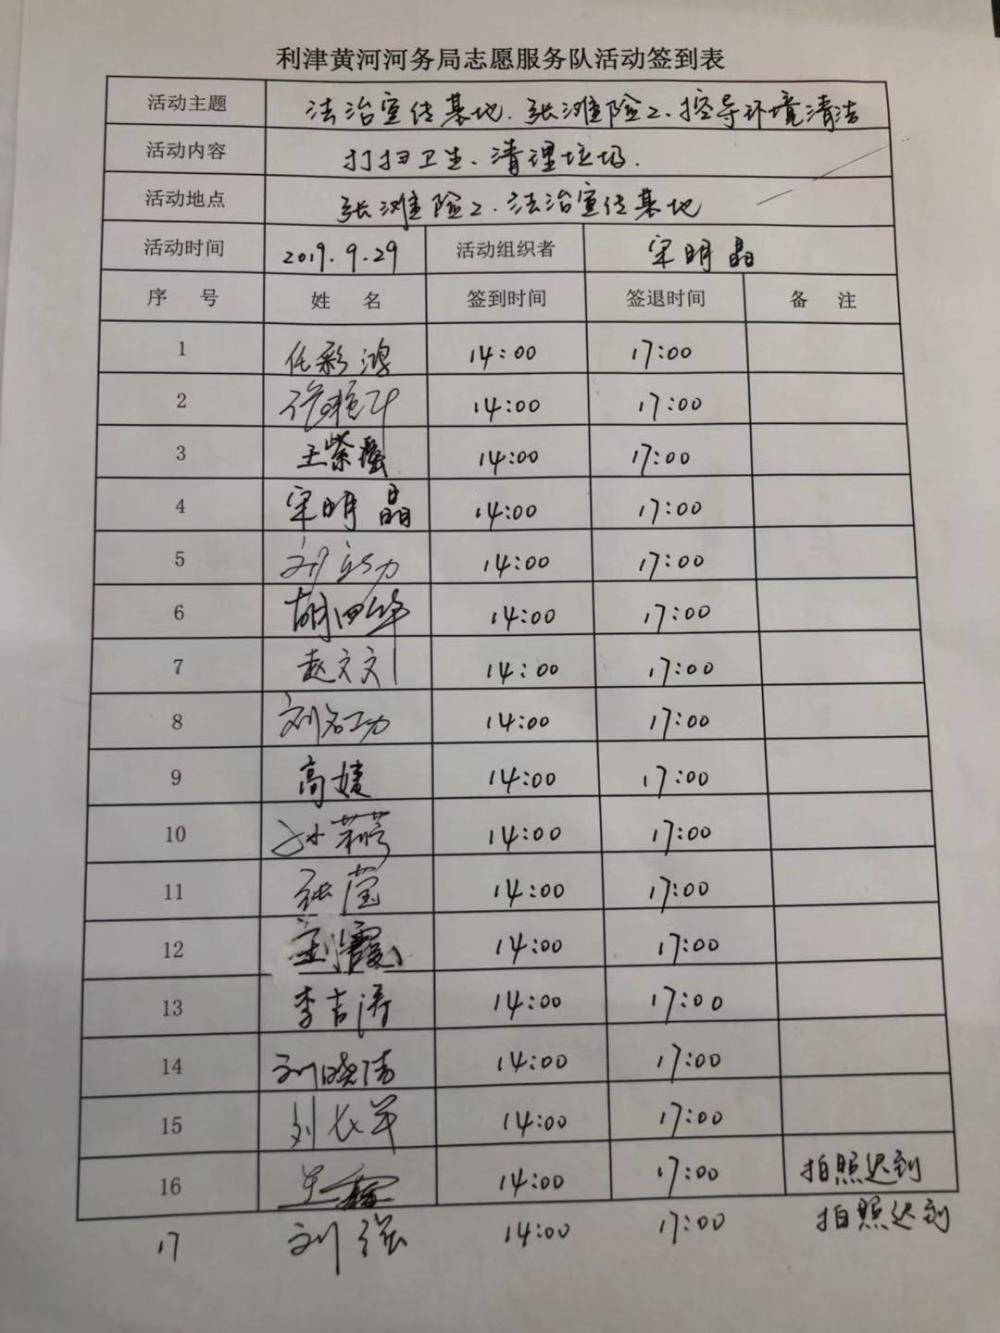 利津黄河河务局志愿服务队活动签到表
活动主题 法治宣传基地.张滩险工.控导环境清洁
活动内容 打扫卫生、清理垃圾.
活动地点 张滩险工.法治宣传基地
活动时间 2019.9.29 活动组织者 宋明晶
序号 姓名 签到时间 签退时间 备注
1 任彩鸿 14:00 17:00
2 14:00 17:00
3 王紫 14:00 17:00
4 宋明晶 14:00 17:00
5 刘 14:00 17:00
6 胡 14:00 17:00
7 赵文 14:00 17:00
8 刘 14:00 17:00
9 高婕 14:00 17:00
10 孙 14:00 17:00
11 张莹 14:00 17:00
12 刘霞 14:00 17:00
13 李吉涛 14:00 17:00
14 刘晓倩 14:00 17:00
15 刘长军 14:00 17:00
16 14:00 17:00 拍照迟到
17 刘强 14:00 17:00 拍照迟到